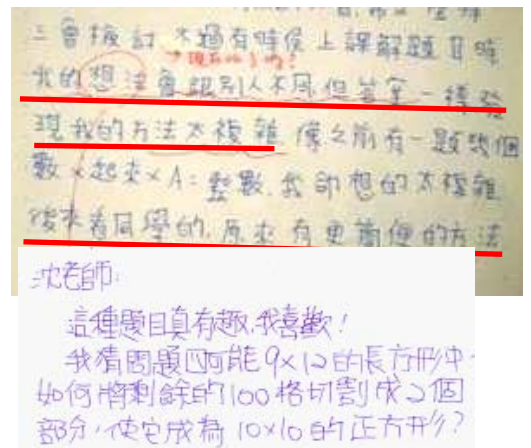 會檢討 不過有時候上課解題目時
我的想法會跟別人不同但答案一樣發
現我的方法太複雜 像之前有一題幾個
數×起來×A=整數. 我卻想的太複雜
後來看同學的. 原來有更簡便的方法
沈老師:
這種題目真有趣,我喜歡!
我猜問題四可能9×12的長方形中,
如何將剩餘的100格切割成2個
部分,使它成為10×10的正方形?